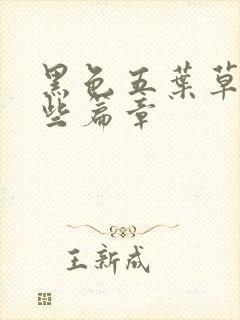 黑色五葉草
些篇章
王新成